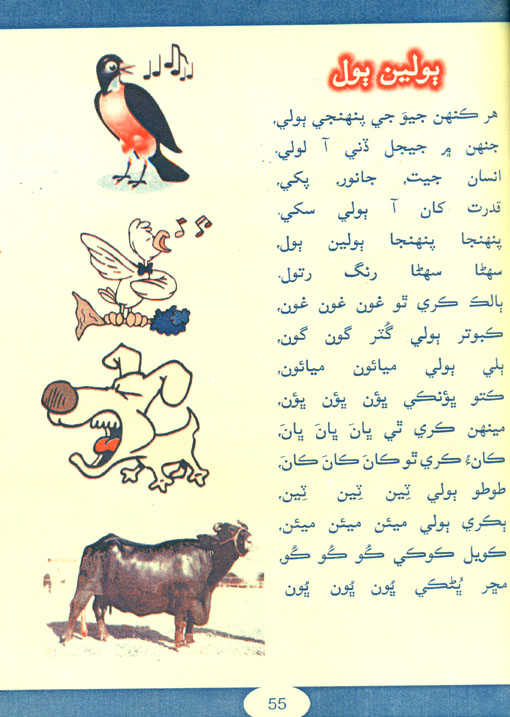 ٻولين ٻول
هر ڪنهن جيوَ جي پنهنجي ٻولي،
جنهن ۾ جيجل ڏني آ لولي.
انسان جيت، جانور، پکي،
قدرت کان آ ٻولي سکي.
پنهنجا پنهنجا ٻولين ٻول،
سهڻا سهڻا رنگ رتول.
ٻالڪ ڪري ٿو غون غون غون،
ڪبوتر ٻولي گُٽر گون گون،
ٻلي ٻولي ميائون ميائون،
ڪتو ڀؤنڪي ڀؤن ڀؤن ڀؤن،
مينهن ڪري ٿي ڀانَ ڀانَ ڀانَ،
ڪانءُ ڪري ٿو ڪانَ ڪانَ ڪانَ،
طوطو ٻولي ٽين ٽين ٽين،
ٻڪري ٻولي ميئن ميئن ميئن،
ڪويل ڪوڪي ڪُو ڪُو ڪُو،
مڇر ڀُڻڪي ڀُون ڀُون ڀُون
55